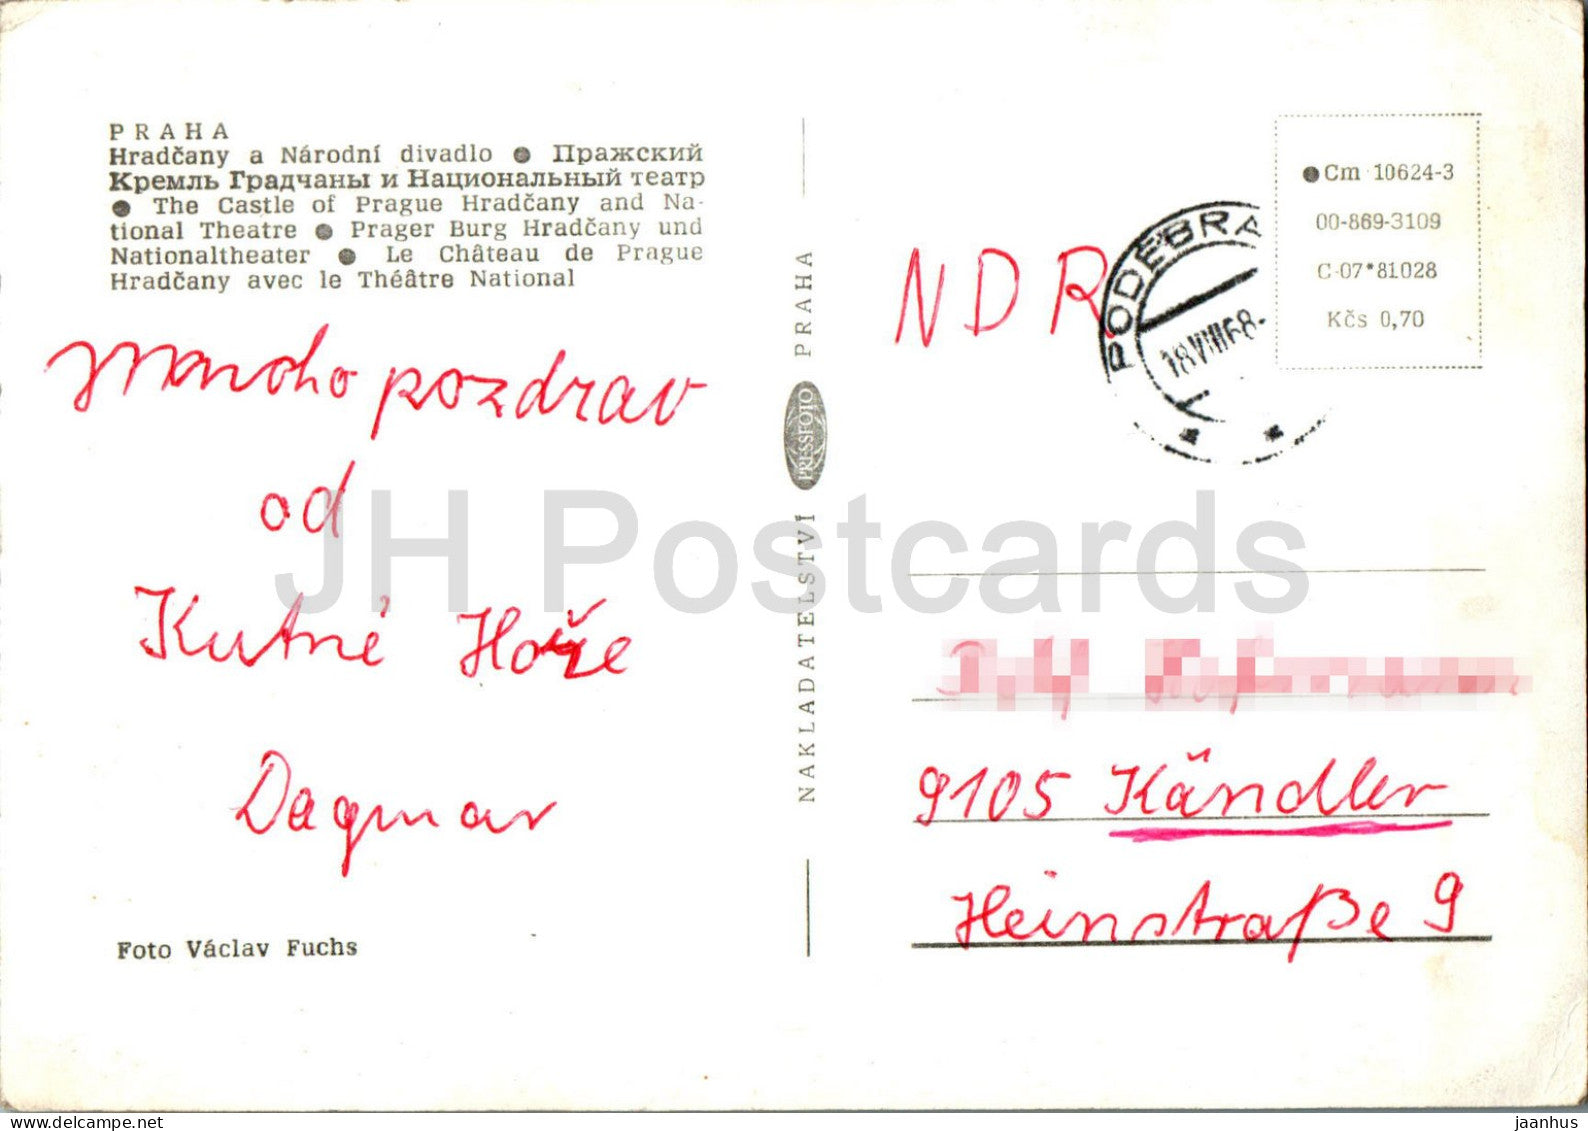 PRAHA
Hradčany a Národní divadlo ● Пражский
Кремль Градчаны и Национальный театр
● The Castle of Prague Hradčany and Na-
tional Theatre ● Prager Burg Hradčany und
Nationaltheater ● Le Château de Prague
Hradčany avec le Théâtre National
pozdrav
od
Kutné Hoře
Dagmar
Foto Václav Fuchs
NAKLADATELSTVÍ PRESSFOTO PRAHA
NDR
PODĚBRA
18.VIII.68.
●Cm 10624-3
00-869-3109
C-07*81028
Kčs 0,70
9105 Kändler
Heinstraße 9
JH Postcards
jaanhus @ www.hipstamp.com